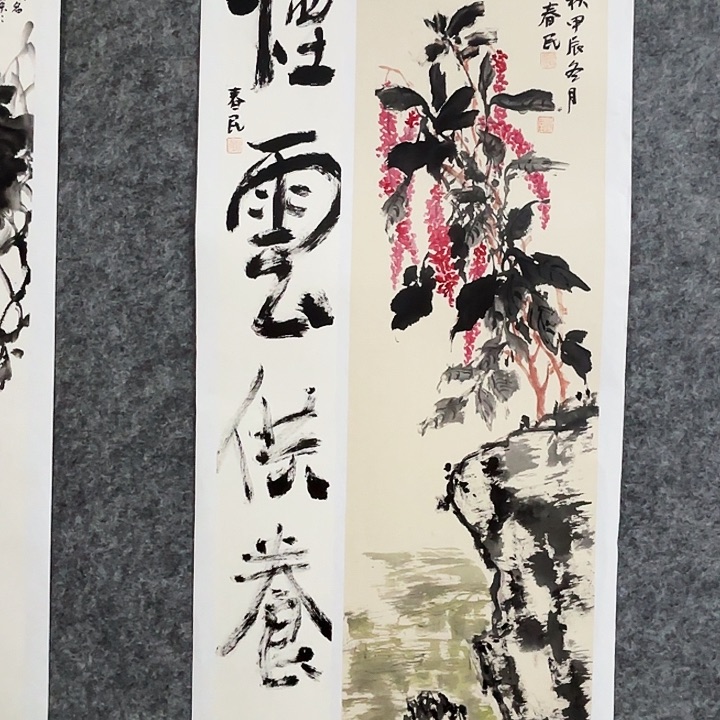 甲辰冬月
春民
煙雲供養
春民